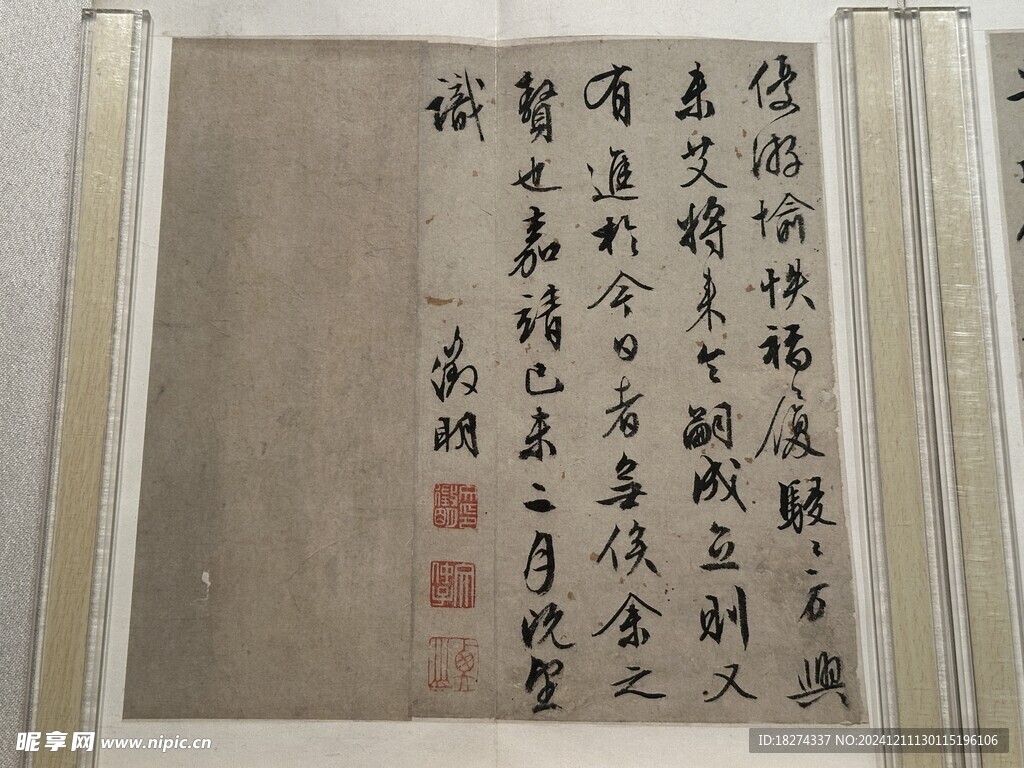 優游愉怢福履駸〻方興
未艾將来令嗣成立則又
有進於今日者無俟余之
贅也嘉靖己未二月既望
識 徵明
昵享网 www.nipic.cn
ID:18274337 NO:20241211130115196106